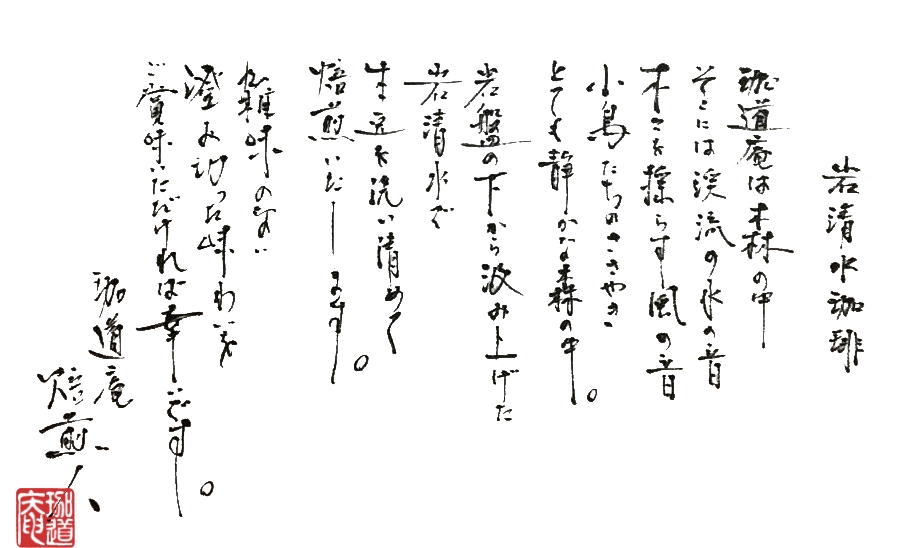 岩清水珈琲
珈道庵は木林の中
そこには渓流の水の音
木々を揺らす風の音
小鳥たちのささやき
とても静かな森の中。
岩盤の下から汲み上げた
岩清水で
生豆を洗い清めて
焙煎いたします。
雑味のない
澄み切った味わいを
ご賞味いただければ幸いです。
珈道庵
焙煎人
珈道